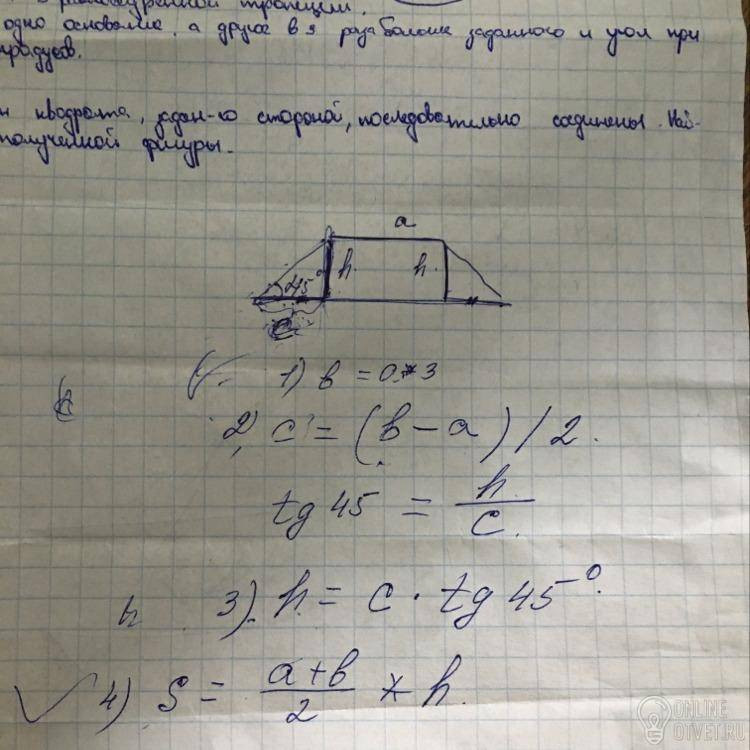 в равнобедренной трапеции.
одно основание, а другое в 3 раза больше заданного и угол при
градусов.
н квадрата, задан-го стороной, последовательно соединены. Най-
полученной фигуры.
a
h h
45°
c
1) в = a * 3
2) c = (в - a) / 2.
tg 45 = h / c.
h 3). h = c · tg 45°.
4) S = a+в / 2 * h.
ONLINE
OTVET.RU